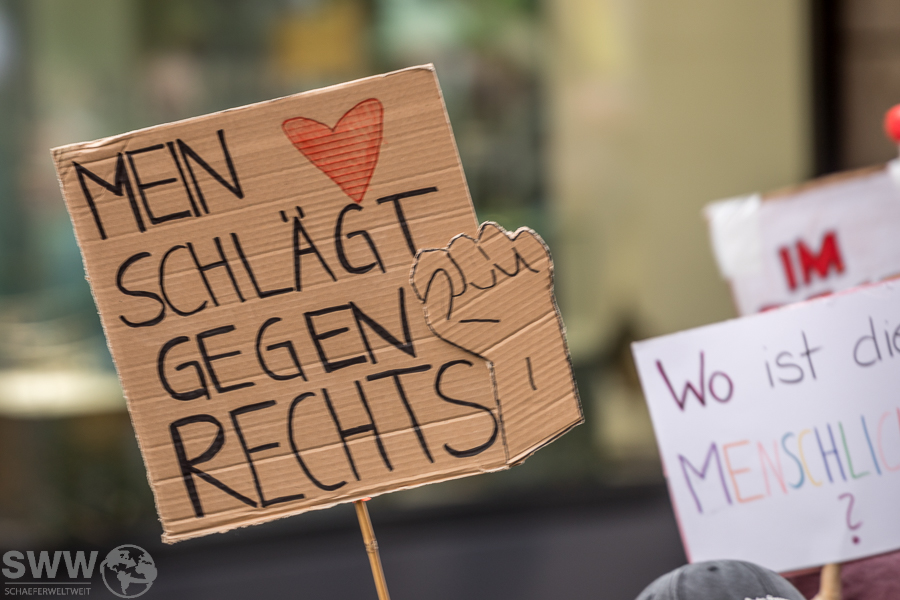 MEIN
SCHLÄGT
GEGEN
RECHTS
IM
Wo ist die
MENSCHLIC
?
SWW
SCHAEFERWELTWEIT